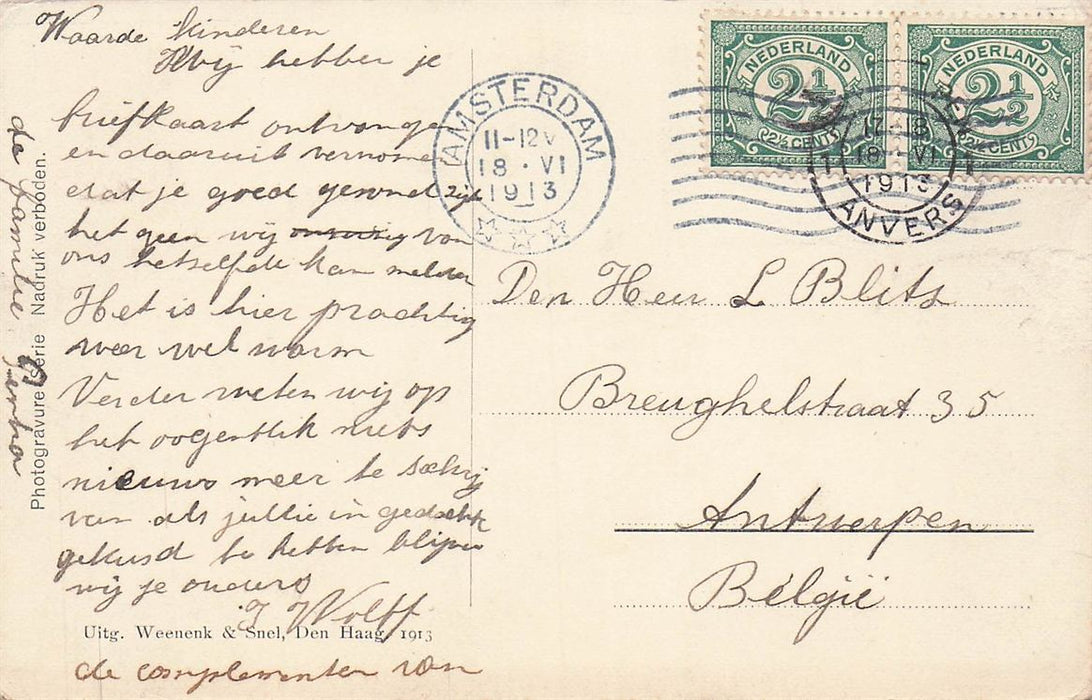 Waarde kinderen
Wij hebben je
briefkaart ontvange
en daaruit vernome
dat je goed gezond zijt
het geen wij van
ons hetzelfde kan melden
Het is hier prachtig
weer wel warm
Verder weten wij op
het oogenblik niets
nieuws meer te schrij
van als jullie in gedacht
gekusd te hebben blijve
wij je ouders
J Wolff
Uitg. Weenenk & Snel, Den Haag 1913
de complementen van
de familie
Photogravure Serie Nadruk verboden.
AMSTERDAM
11-12V
18 · VI
1913
1
NEDERLAND
2½
2½ CENT
NEDERLAND
2½
2½ CENT
17-18
18 VI
1913
ANVERS
Den Heer L Blits
Breughelstraat 35
Antwerpen
België